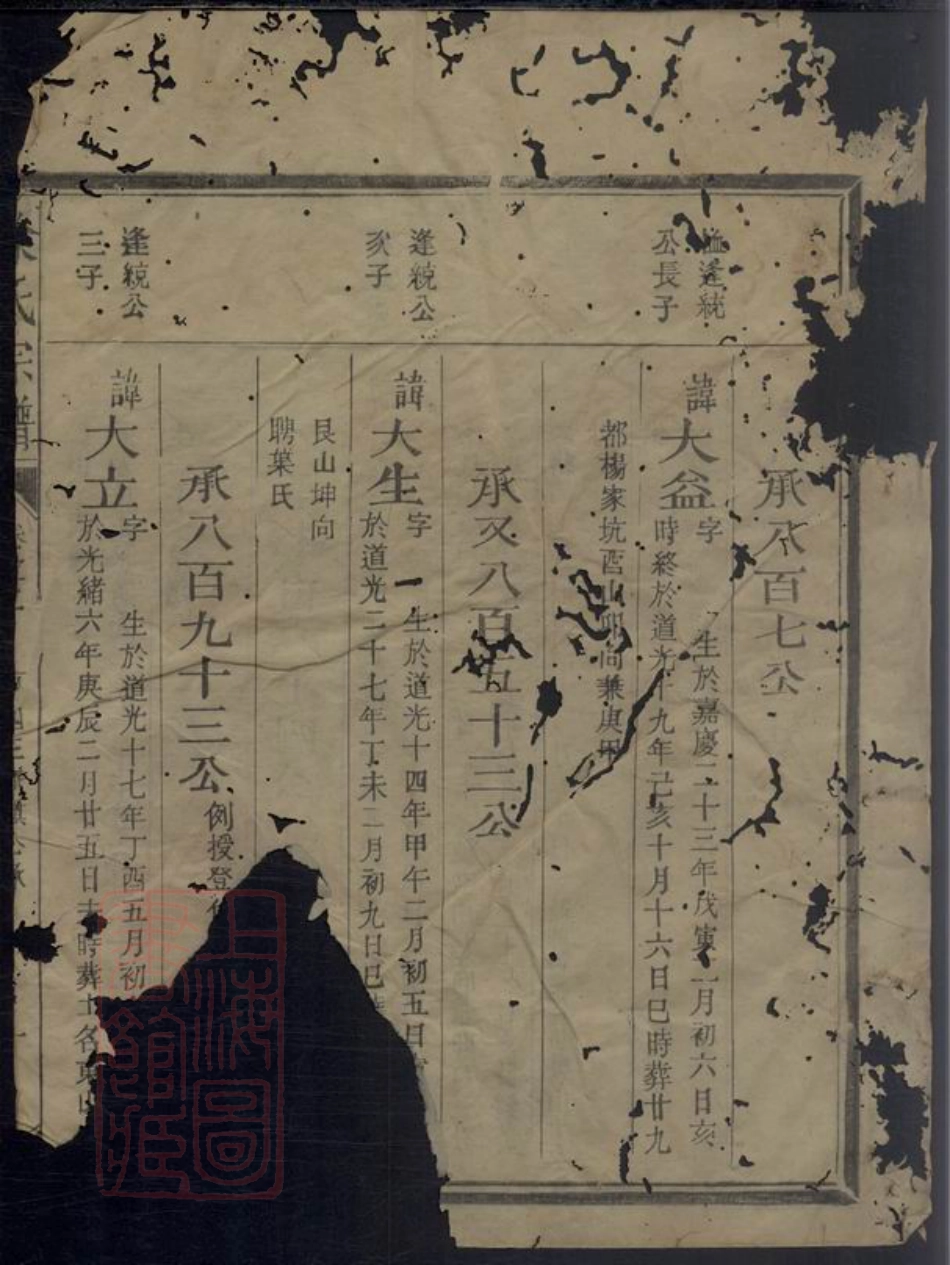 逢統
公長子
承八百七公
諱大益
字 生於嘉慶二十三年戊寅二月初六日亥
時終於道光十九年己亥十月十六日巳時葬廿九
都楊家坑酉山卯向兼庚甲
逢統公
次子
承又八百五十三公
諱大生
字 生於道光十四年甲午二月初五日
於道光二十七年丁未二月初九日巳
艮山坤向
聘葉氏
逢統公
三子
承八百九十三公
例授登
諱大立
字 生於道光十七年丁酉五月初
於光緒六年庚辰二月廿五日未時葬土名東山
氏宗譜
上海圖書館藏